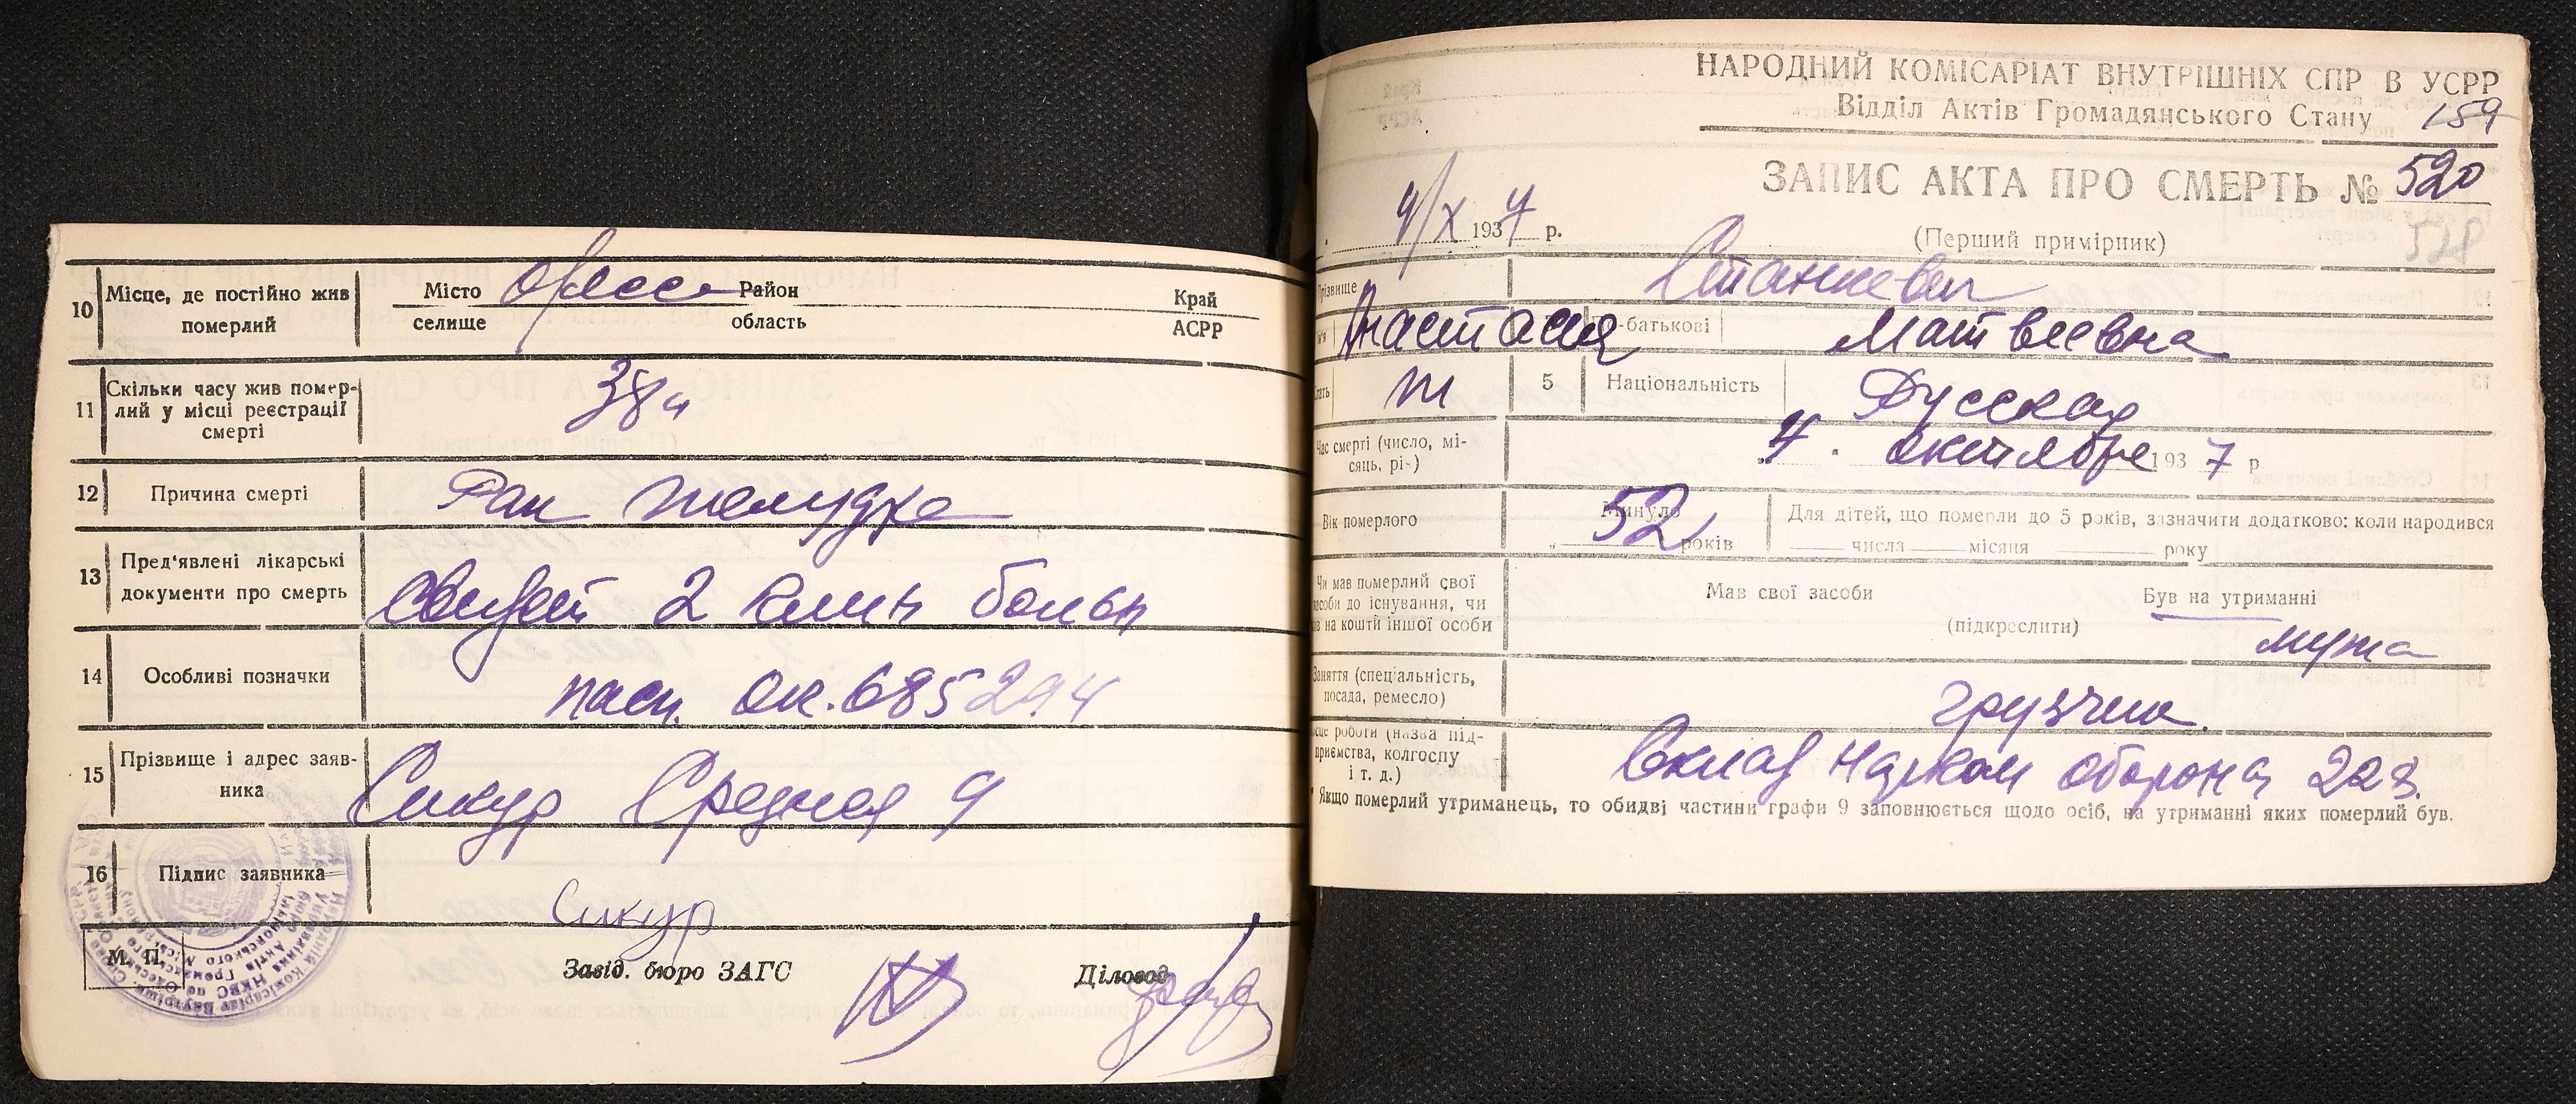 НАРОДНИЙ КОМІСАРІАТ ВНУТРІШНІХ СПР В УСРР
Відділ Актів Громадянського Стану 159
ЗАПИС АКТА ПРО СМЕРТЬ № 520
4/X 1937 р.
(Перший примірник)
528
Прізвище Станкевич
Анастасия По-батькові Матвеевна
Стать Ж 5 Національність Русская
Час смерті (число, місяць, рік) 4 октября 1937 р
Вік померлого Минуло 52 років Для дітей, що померли до 5 років, зазначити додатково: коли народився
числа місяця року
Чи мав померлий свої
засоби до існування, чи
був на кошті іншої особи
Мав свої засоби Був на утриманні
(підкреслити) мужа
Заняття (спеціальність,
посада, ремесло)
грузчик
Місце роботи (назва під-
приємства, колгоспу
і т. д.)
Склад Нарком обороны 228.
* Якщо померлий утриманець, то обидві частини графи 9 заповнюється щодо осіб, на утриманні яких померлий був.
10 Місце, де постійно жив
померлий
Місто Одесса Район Край
селище область АСРР
11 Скільки часу жив помер-
лий у місці реєстрації
смерті
38
12 Причина смерті Рак желудка
13 Пред'явлені лікарські
документи про смерть
Свидет 2 клин больн
14 Особливі позначки пасп. ОК.685294
15 Прізвище і адрес заяв-
ника
Сикур Средняя 9
16 Підпис заявника Сикур
М. П. Завід. бюро ЗАГС Діловод